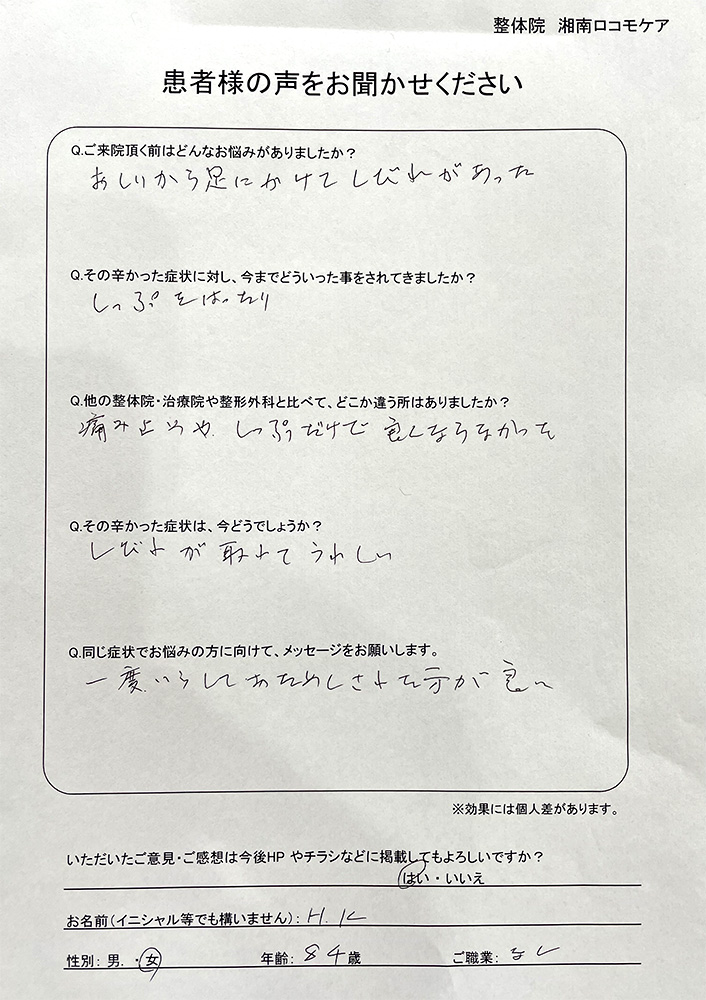 整体院 湘南ロコモケア
患者様の声をお聞かせください
Q.ご来院頂く前はどんなお悩みがありましたか？
おしりから足にかけてしびれがあった
Q.その辛かった症状に対し、今までどういった事をされてきましたか？
しっぷをはったり
Q.他の整体院・治療院や整形外科と比べて、どこか違う所はありましたか？
痛み止めや、しっぷだけで良くならなかった
Q.その辛かった症状は、今どうでしょうか？
しびれが取れてうれしい
Q.同じ症状でお悩みの方に向けて、メッセージをお願いします。
一度いらしておためしされた方が良い
※効果には個人差があります。
いただいたご意見・ご感想は今後HPやチラシなどに掲載してもよろしいですか？
はい・いいえ
お名前（イニシャル等でも構いません）：H.K
性別：男．・女 年齢：84歳 ご職業：なし